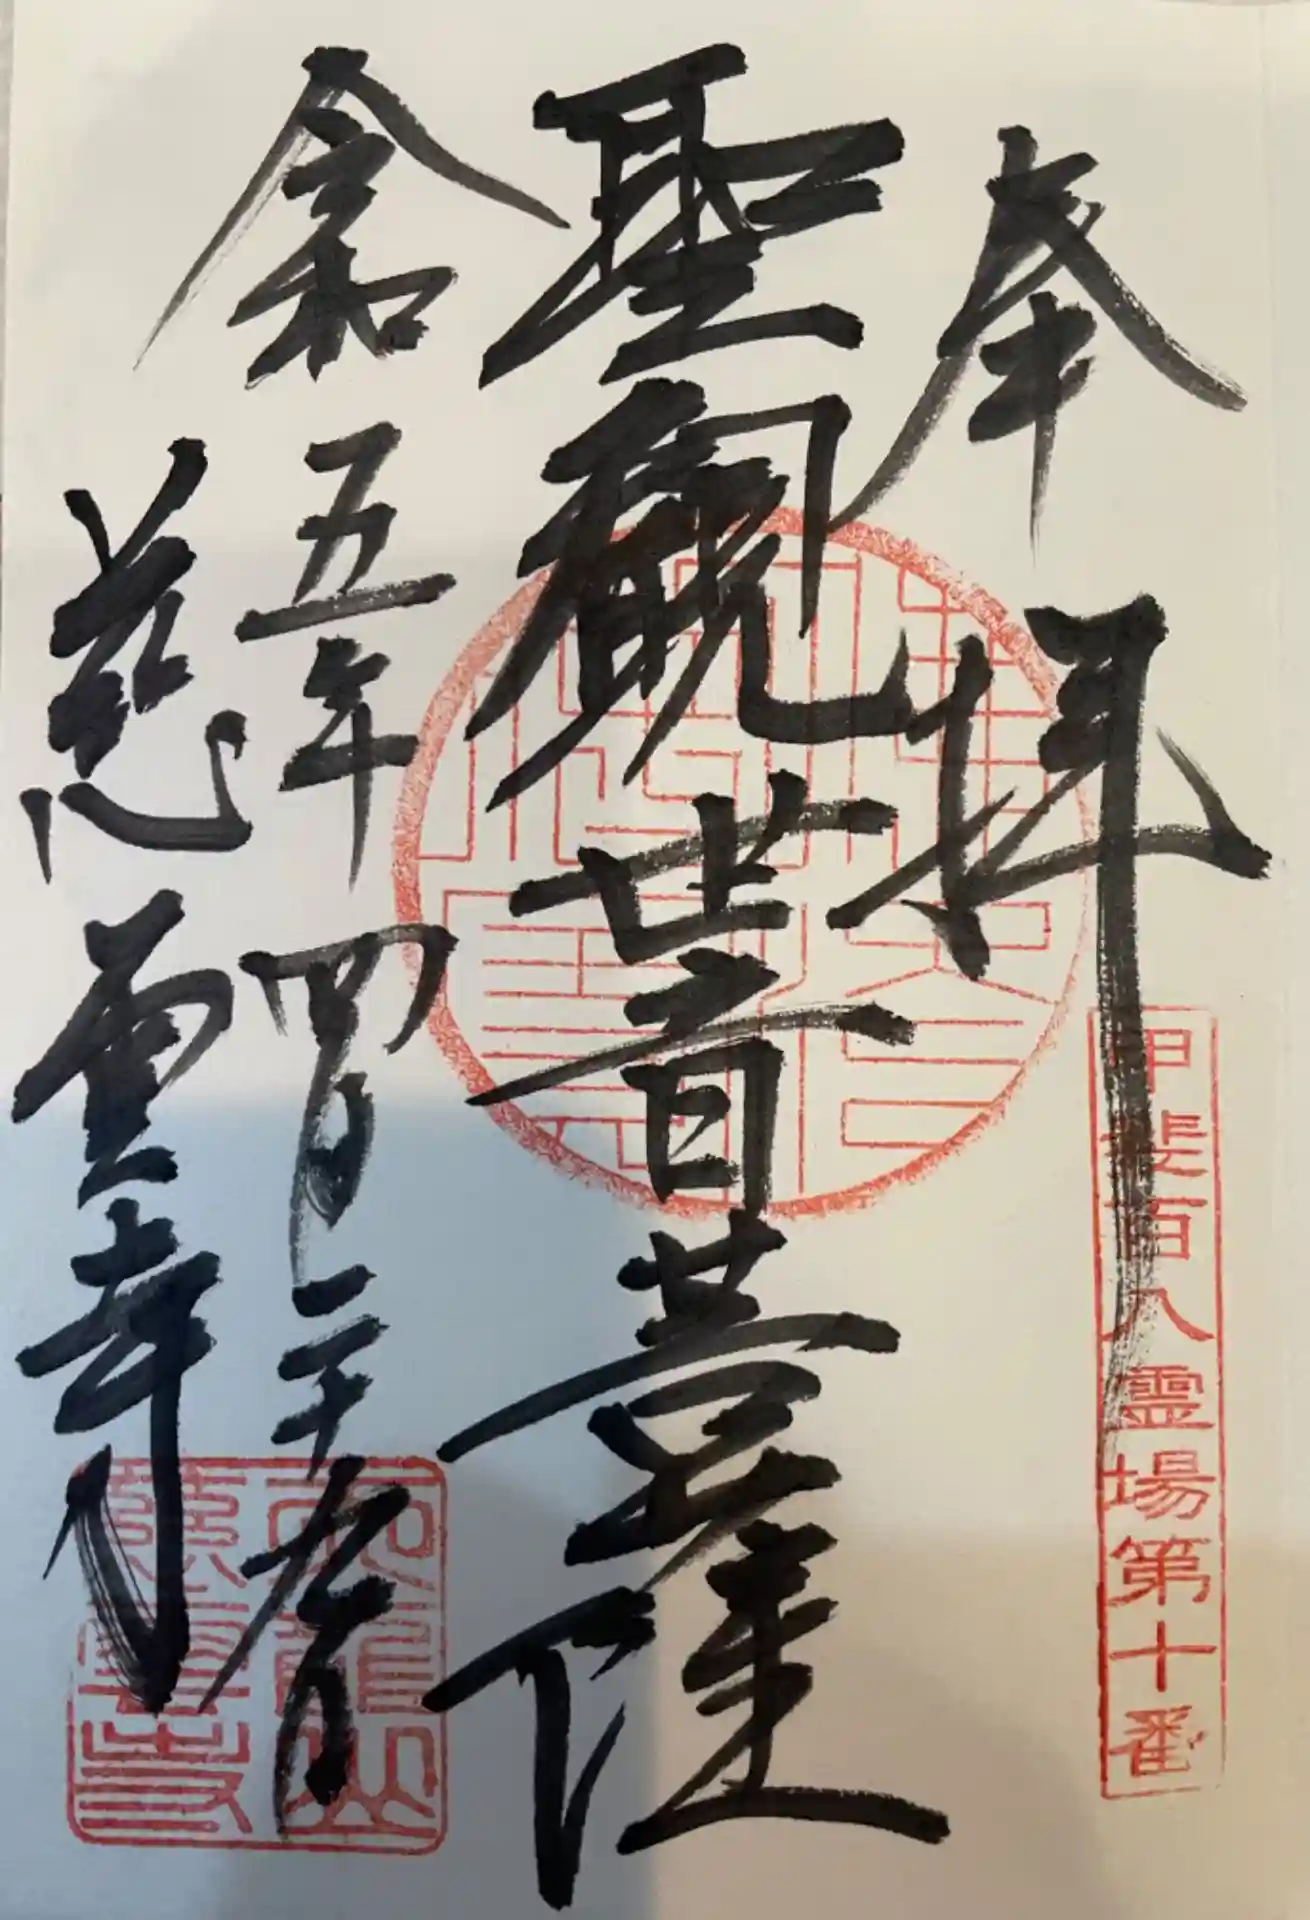 奉拝
甲斐百八霊場第十番
聖観世音菩薩
令和五年四月二十九日
慈雲寺
天龍山
慈雲寺